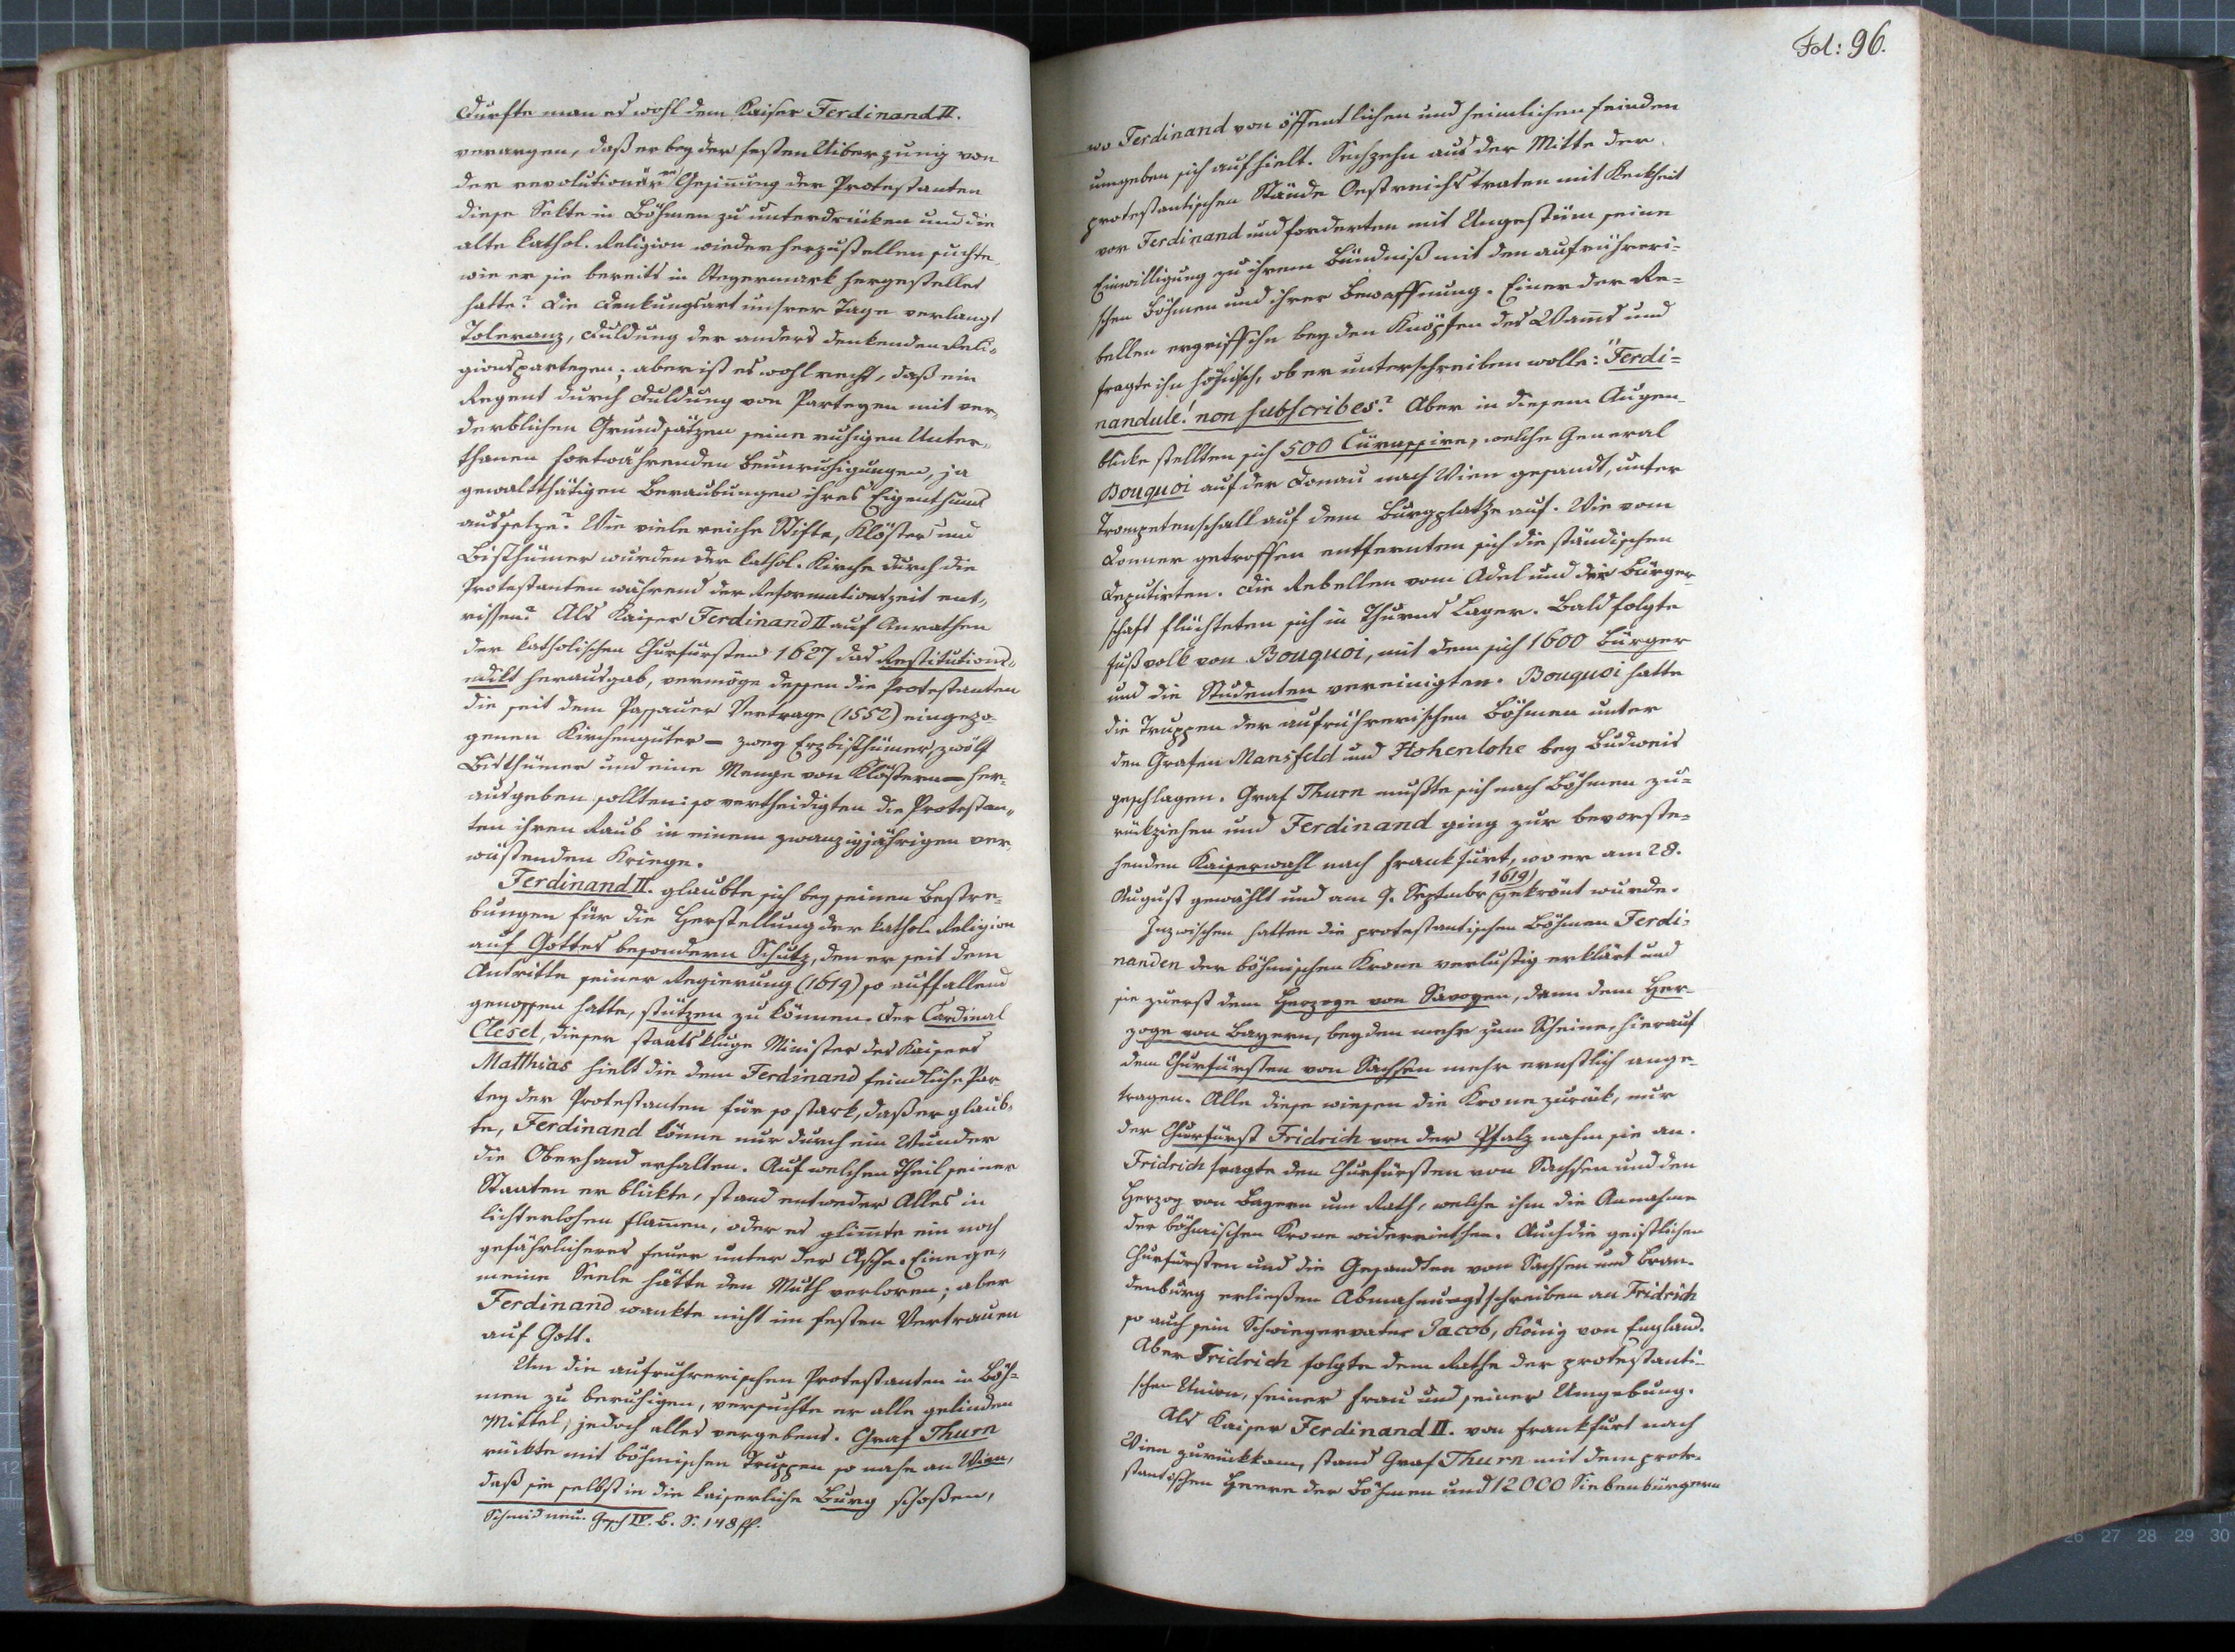 durfte man es wohl dem Kaiser Ferdinand II.
verargen, daß er bey der festen Uiberzeugung von
der revolutionären Gesinnung der Protestanten
diese Sekte in Böhmen zu unterdrücken und die
alte kathol. Religion wieder herzustellen suchte,
wie er sie bereits in Steyermark hergestellet
hatte? Die Denkungsart unsrer Tage verlangt
Toleranz, Duldung der anders denkenden Reli-
gionspartheyen; aber ist es wohl recht, daß ein
Regent durch Duldung von Parteyen mit ver-
derblichen Grundsätzen seine ruhigen Unter-
thanen fortwährenden Beunruhigungen, ja
gewaltthätigen Beraubungen ihres Eigenthums
aussetze? Wie viele reiche Stifte, Klöster und
Bisthümer wurden der kathol. Kirche durch die
Protestanten während der Reformationszeit ent-
rissen? Als Kaiser Ferdinand II auf Anrathen
der katholischen Churfürsten 1627 das Restitutions-
edikt herausgab, vermöge dessen die Protestanten
die seit dem Passauer Vertrage (1552) eingezo-
genen Kirchengüter – zwey Erzbisthümer, zwölf
Bisthümer und eine Menge von Klöstern – her-
ausgeben sollten: so vertheidigten die Protestan-
ten ihren Raub in einem zwanzigjährigen ver-
wüstenden Kriege.
Ferdinand II. glaubte sich bey seinen Bestre-
bungen für die Herstellung der kathol. Religion
auf Gottes besondern Schutz, den er seit dem
Antritte seiner Regierung (1619) so auffallend
genossen hatte, stützen zu können. Der Cardinal
Clesel, dieser staatskluge Minister des Kaisers
Matthias hielt die dem Ferdinand feindliche Par-
tey der Protestanten für so stark, daß er glaub-
te, Ferdinand könne nur durch ein Wunder
die Oberhand erhalten. Auf welchen Theil seiner
Staaten er blickte, stand entweder Alles in
lichterlohen Flamen, oder es glimte ein noch
gefährlicheres Feuer unter der Asche. Eine ge-
meine Seele hätte den Muth verloren; aber
Ferdinand wankte nicht im festen Vertrauen
auf Gott.
Um die aufrührerischen Protestanten in Böh-
men zu beruhigen, versuchte er alle gelinden
Mittel, jedoch alles vergebens. Graf Thurn
rückte mit böhmischen Truppen so nahe an Wien,
daß sie selbst in die kaiserliche Burg schoßen,
Schmid neu. Gesch IV. B. S. 148 ff.
Fol: 96.
wo Ferdinand von öffentlichen und heimlichen Feinden
umgeben sich aufhielt. Sechzehn aus der Mitte der
protestantischen Stände Oestreichs traten mit Keckheit
vor Ferdinand und forderten mit Ungestüm seine
Einwilligung zu ihrem Bündniß mit den aufrühreri-
schen Böhmen und ihrer Bewaffnung. Einer der Re-
bellen ergriff ihn bey den Knöpfen des Wamses und
fragte ihn höhnisch, ob er unterschreiben wolle: "Ferdi-
nandule! non subscribes? Aber in diesem Augen-
blicke stellten sich 500 Cürassire, welche General
Bouquoi auf der Donau nach Wien gesandt, unter
Trompetenschall auf dem Burgplatze auf. Wie vom
Donner getroffen entfernten sich die ständischen
Deputirten. Die Rebellen vom Adel und der Bürger-
schaft flüchteten sich in Thurns Lager. Bald folgte
Fußvolk von Bouquoi, mit dem sich 1600 Bürger
und die Studenten vereinigten. Bouquoi hatte
die Truppen der aufrührerischen Böhmen unter
den Grafen Mansfeld und Hohenlohe bey Budweis
geschlagen. Graf Thurn mußte sich nach Böhmen zu-
rückziehen und Ferdinand ging zur bevorste-
henden Kaiserwahl nach Frankfurt, wo er am 28.
August gewählt und am 9. Septmbr (1619) gekrönt wurde.
Inzwischen hatten die protestantischen Böhmen Ferdi-
nanden der böhmischen Krone verlustig erklärt und
sie zuerst dem Herzoge von Savoyen, dann dem Her-
zoge von Bayern, beyden mehr zum Scheine, hierauf
dem Churfürsten von Sachsen mehr ernstlich ange-
tragen. Alle diese wiesen die Krone zurück, nur
der Churfürst Fridrich von der Pfalz nahm sie an.
Fridrich fragte den Churfürsten von Sachsen und den
Herzog von Bayern um Rath, welche ihm die Annahme
der böhmischen Krone widerriethen. Auch die geistlichen
Churfürsten und die Gesandten von Sachsen und Bran-
denburg erließen Abmahnungsschreiben an Fridrich
so auch sein Schwiegervater Jacob, König von England.
Aber Fridrich folgte dem Rathe der protestanti-
schen Union, seiner Frau und seiner Umgebung.
Als Kaiser Ferdinand II. von Frankfurt nach
Wien zurückkam, stand Graf Thurn mit dem prote-
stantischen Heere der Böhmen und 12000 Siebenbürgern
12
26 27 28 29 30